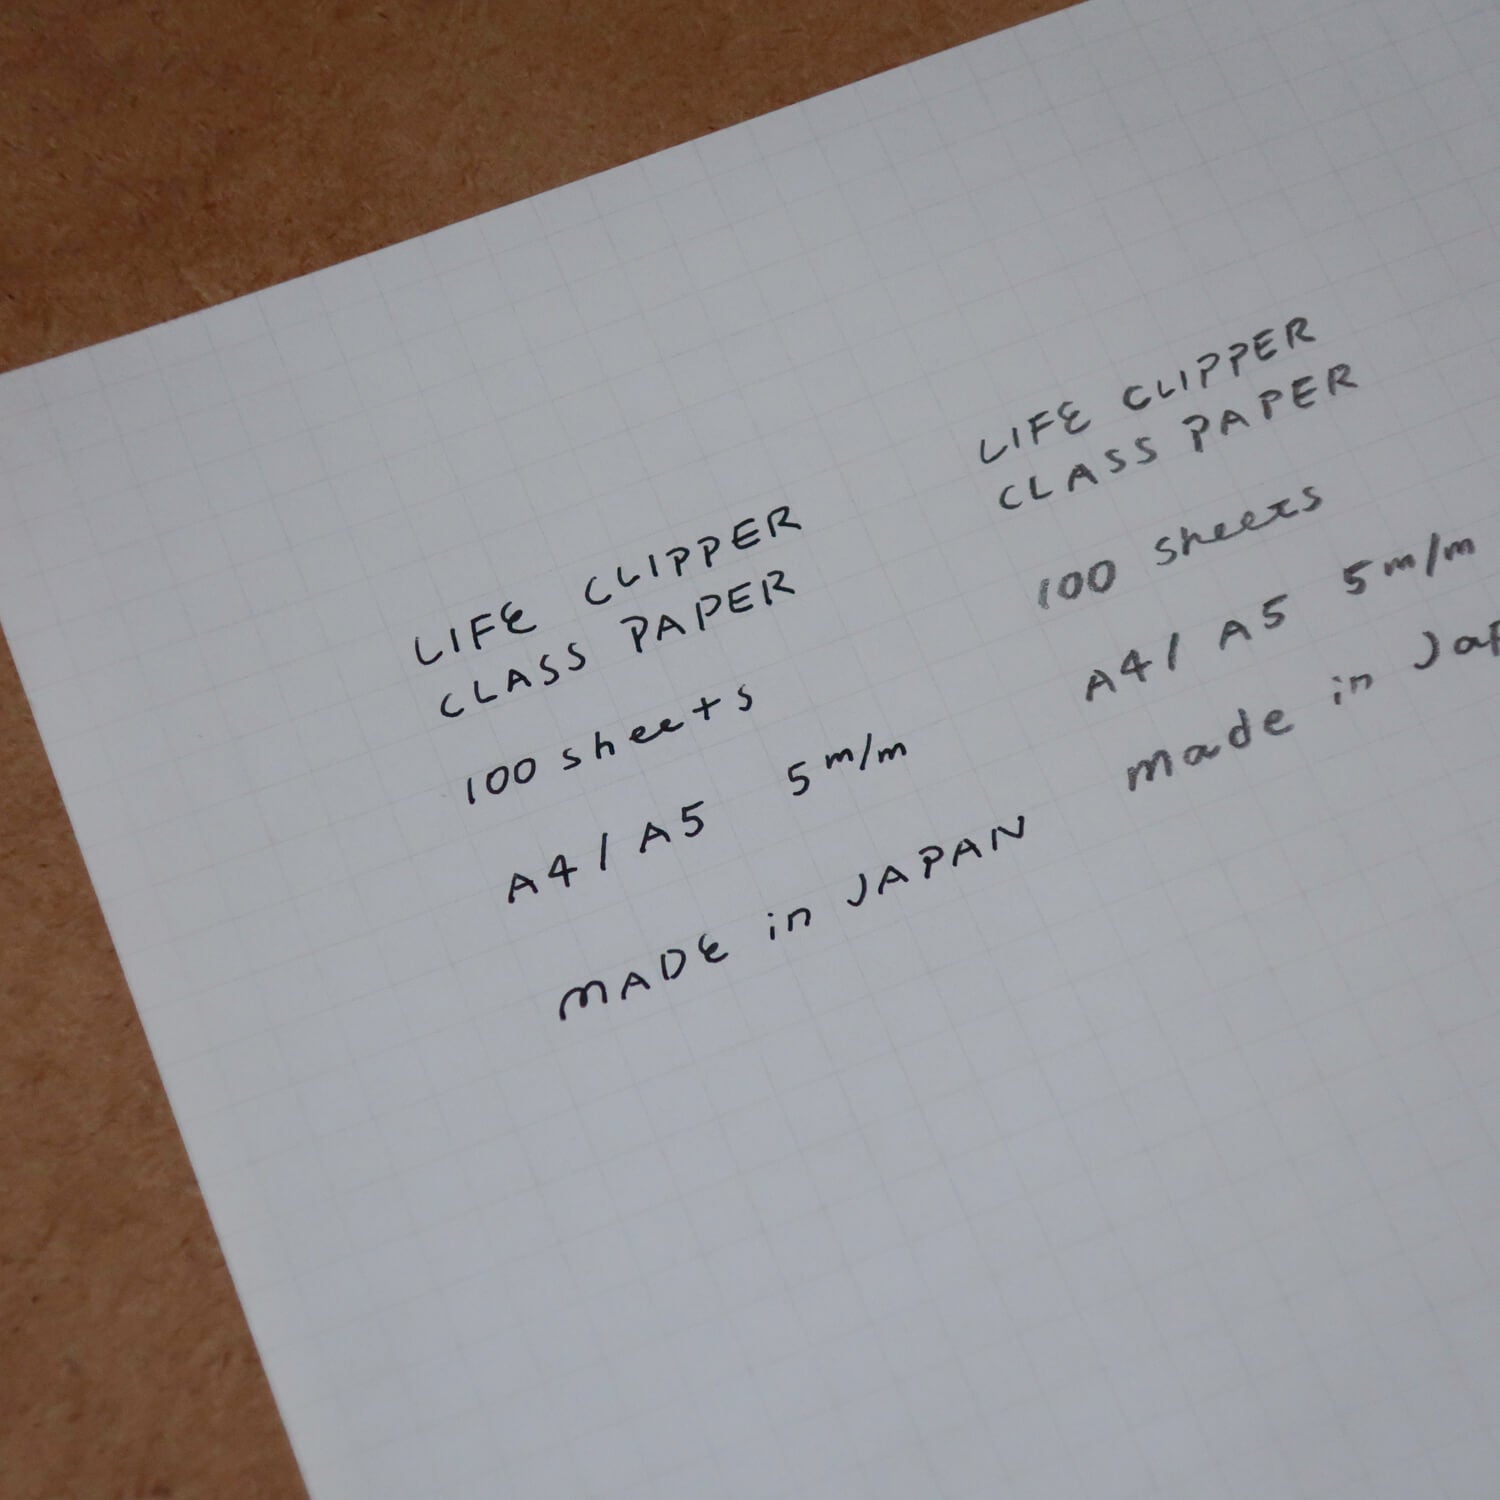 LIFE CLIPPER
CLASS PAPER
100 sheets
A4/A5 5m/m
MADE in JAPAN
LIFE CLIPPER
CLASS PAPER
100 sheets
A4/A5 5m/m
made in Jap